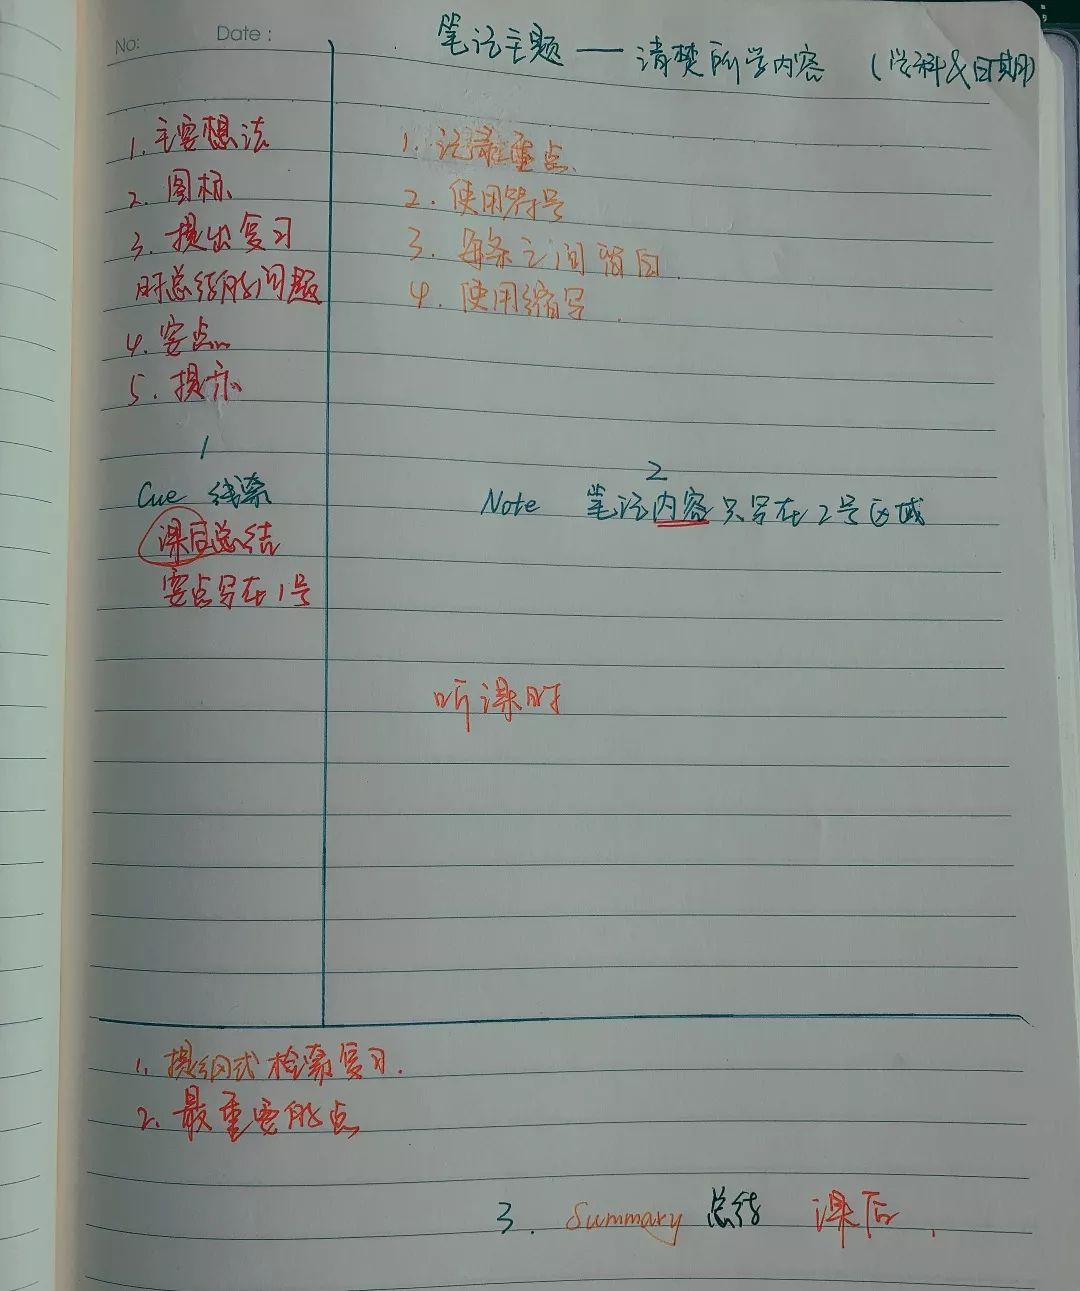 No:
Date:
笔记主题——清楚所学内容 (学科&日期)
1. 主要想法
2. 图标
3. 提出复习
时总结的问题
4. 要点
5. 提示
1
Cue 线索
课后总结
要点写在1号
1. 记录重点
2. 使用符号
3. 每条之间留白
4. 使用缩写.
2
Note 笔记内容只写在2号区域
听课时
1. 提纲式检索复习.
2. 最重要的点
3. Summary 总结 课后.